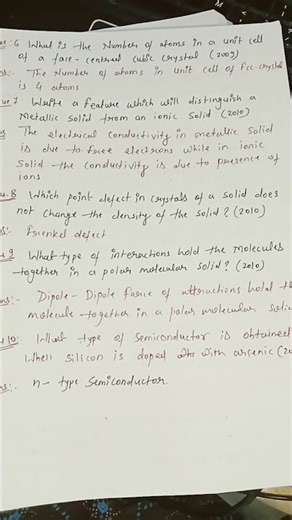 ue:6 What is the Number of atoms in a unit cell
of a face-centred cubic crystal (2009)
ns:- The Number of atoms in unit cell of fcc-crystal
is 4 atoms
ue 7 Write a feature which will distinguish a
Metallic solid from an ionic Solid (2010)
The electrical conductivity in metallic Solid
is due to free electrons while in ionic
Solid the conductivity is due to presence of
ions
8 Which point defect in crystals of a solid does
not change the density of the solid? (2010)
Frenkel defect
9 What type of interactions hold the molecules
together in a polar molecular solid? (2010)
ns:- Dipole-Dipole force of attractions hold
molecule together in a polar molecular
10: What type of semiconductor is obtained
When Silicon is doped with arsenic
ns:- n-type Semiconductor.